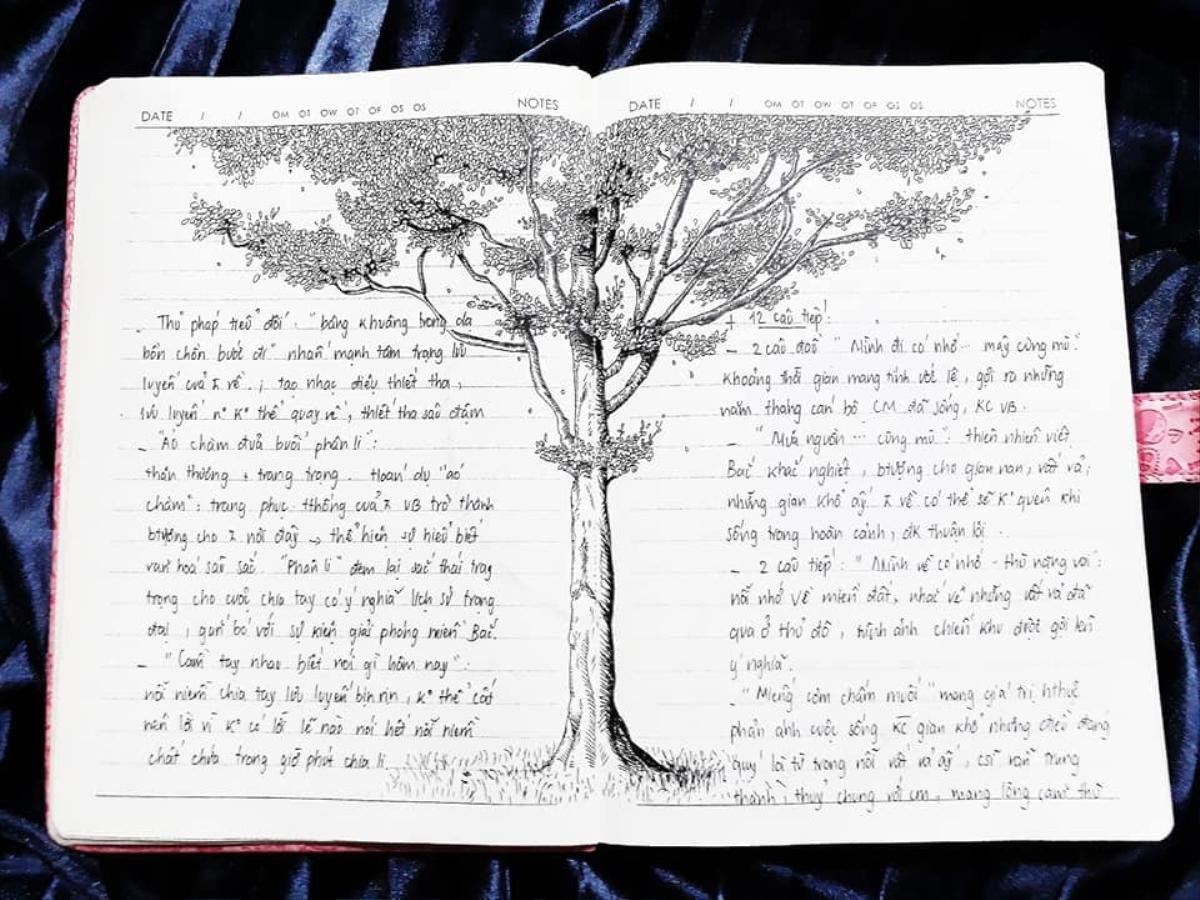 DATE / / OM OT OW OT OF OS OS NOTES
- Thủ pháp tiểu đối: "bâng khuâng trong dạ
bồn chồn bước đi" nhấn mạnh tâm trạng lưu
luyến của ⊼ về; tạo nhạc điệu thiết tha,
lưu luyến n⁰ K⁰ thể quay về, thiết tha sâu đậm
- "Áo chàm đưa buổi phân li":
thân thương + trang trọng. Hoán dụ "áo
chàm": trang phục tthống của ⊼ VB trở thành
btượng cho ⊼ nơi đây → thể hiện sự hiểu biết
văn hoá sâu sắc. "Phân li" đem lại sắc thái trag
trọng cho cuộc chia tay có ý nghĩa lịch sử trọng
đại, gắn bó với sự kiện giải phóng miền Bắc.
- "Cầm tay nhau biết nói gì hôm nay":
nỗi niềm chia tay lưu luyến bịn rịn, k⁰ thể cất
nên lời vì K⁰ có lời lẽ nào nói hết nỗi niềm
chất chứa trong giờ phút chia li
DATE / / OM OT OW OT OF OS OS NOTES
+ 12 câu tiếp:
- 2 câu đầu "Mình đi có nhớ ... mây cùng mù":
Khoảng thời gian mang tính ước lệ, gợi ra những
năm tháng cán bộ CM đã sống, KC VB.
- "Mưa nguồn ... cùng mù": thiên nhiên Việt
Bắc khắc nghiệt, btượng cho gian nan, vất vả;
những gian khổ ấy ⊼ về có thể sẽ K⁰ quen khi
sống trong hoàn cảnh, đk thuận lợi.
- 2 câu tiếp: "Mình về có nhớ - thù nặng vai":
nỗi nhớ về miền đất, nhắc về những vất vả đã
qua ở thủ đô, hình ảnh chiến khu được gợi lên
ý nghĩa.
"Miếng cơm chấm muối" mang giá trị hthực
phản ánh cuộc sống KC gian khổ nhưng điều đáng
quý là từ trong nỗi vất vả ấy, csĩ vẫn trung
thành, thuỷ chung với cm, mang lòng căm thù